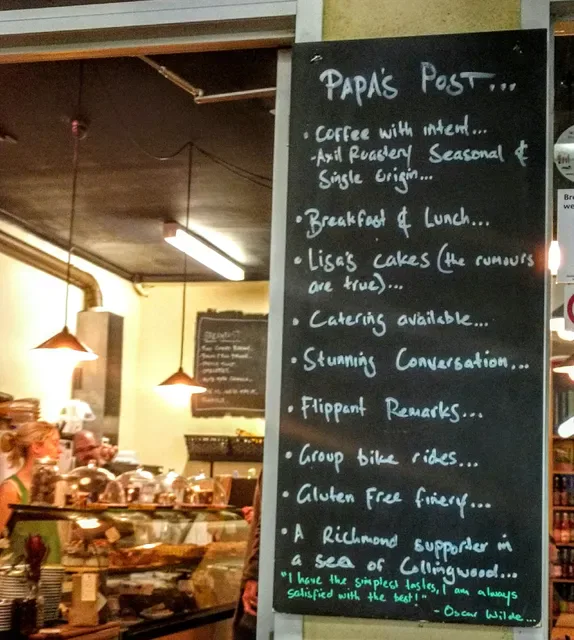 PAPA'S POST...
• Coffee with intent...
-Axil Roastery Seasonal &
Single Origin...
• Breakfast & Lunch...
• Lisa's cakes (the rumours
are true)...
• Catering available...
• Stunning Conversation...
• Flippant Remarks...
• Group bike rides...
• Gluten Free finery...
• A Richmond supporter in
a sea of Collingwood...
"I have the simplest tastes, I am always
satisfied with the best!" - Oscar Wilde...
BREAKFAST